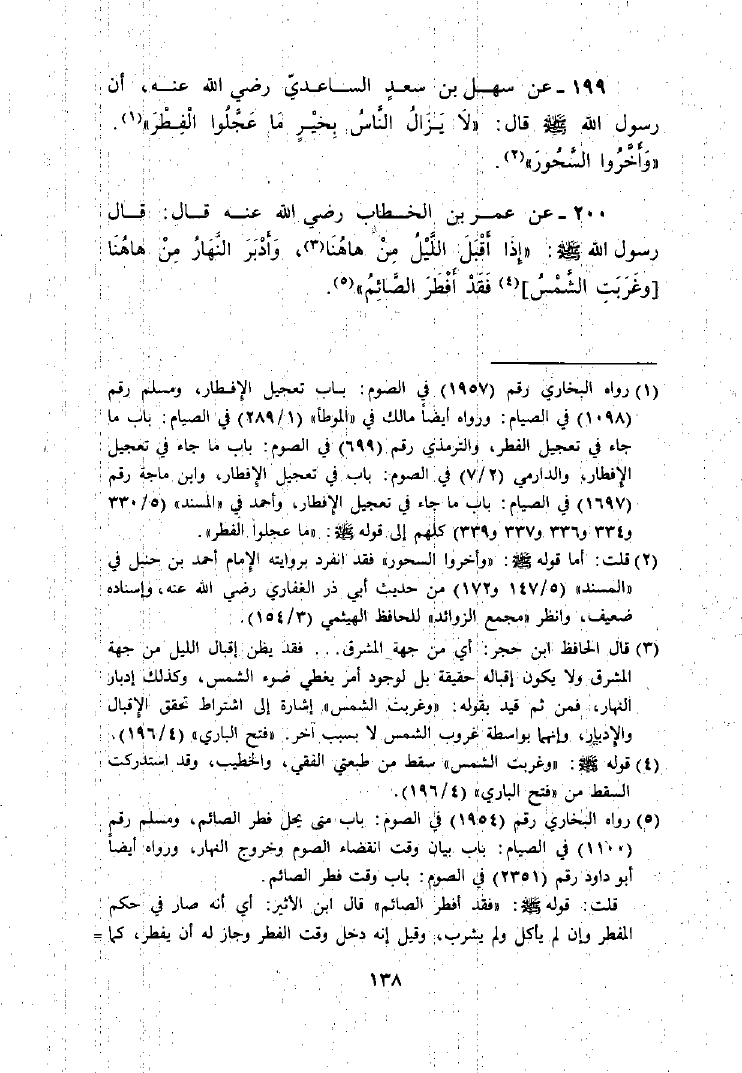 ١٩٩ - عن سهل بن سعدٍ الساعديّ رضي الله عنه، أن
رسول الله ﷺ قال: «لَا يَزَالُ النَّاسُ بِخَيْرٍ مَا عَجَّلُوا الْفِطْرَ»(١).
«وَأَخَّرُوا السَّحُورَ»(٢).
٢٠٠ - عن عمر بن الخطاب رضي الله عنه قال: قال
رسول الله ﷺ: «إِذَا أَقْبَلَ اللَّيْلُ مِنْ هاهُنَا(٣)، وَأَدْبَرَ النَّهَارُ مِنْ هاهُنَا
[وغَرَبَتِ الشَّمْسُ](٤) فَقَدْ أَفْطَرَ الصَّائِمُ»(٥).
(١) رواه البخاري رقم (١٩٥٧) في الصوم: باب تعجيل الإفطار، ومسلم رقم
(١٠٩٨) في الصيام: ورواه أيضاً مالك في «الموطأ» (٢٨٩/١) في الصيام: باب ما
جاء في تعجيل الفطر، والترمذي رقم (٦٩٩) في الصوم: باب ما جاء في تعجيل
الإفطار، والدارمي (٧/٢) في الصوم: باب في تعجيل الإفطار، وابن ماجة رقم
(١٦٩٧) في الصيام: باب ما جاء في تعجيل الإفطار، وأحمد في «المسند» (٣٣٠/٥
و٣٣٤ و٣٣٦ و٣٣٧ و٣٣٩) كلهم إلى قوله ﷺ: «ما عجلوا الفطر».
(٢) قلت: أما قوله ﷺ: «وأخروا السحور» فقد انفرد بروايته الإمام أحمد بن حنبل في
«المسند» (١٤٧/٥ و١٧٢) من حديث أبي ذر الغفاري رضي الله عنه، وإسناده
ضعيف، وانظر «مجمع الزوائد» للحافظ الهيثمي (١٥٤/٣).
(٣) قال الحافظ ابن حجر: أي من جهة المشرق... فقد يظن إقبال الليل من جهة
المشرق ولا يكون إقباله حقيقة بل لوجود أمر يغطي ضوء الشمس، وكذلك إدبار
النهار، فمن ثم قيد بقوله: «وغربت الشمس» إشارة إلى اشتراط تحقق الإقبال
والإدبار، وإنهما بواسطة غروب الشمس لا بسبب آخر. «فتح الباري» (١٩٦/٤).
(٤) قوله ﷺ: «وغربت الشمس» سقط من طبعتي الفقي، والخطيب، وقد استدركت
السقط من «فتح الباري» (١٩٦/٤).
(٥) رواه البخاري رقم (١٩٥٤) في الصوم: باب متى يحل فطر الصائم، ومسلم رقم
(١١٠٠) في الصيام: باب بيان وقت انقضاء الصوم وخروج النهار، ورواه أيضاً
أبو داود رقم (٢٣٥١) في الصوم: باب وقت فطر الصائم.
قلت: قوله ﷺ: «فقد أفطر الصائم» قال ابن الأثير: أي أنه صار في حكم
المفطر وإن لم يأكل ولم يشرب، وقيل إنه دخل وقت الفطر وجاز له أن يفطر، كما =
١٣٨